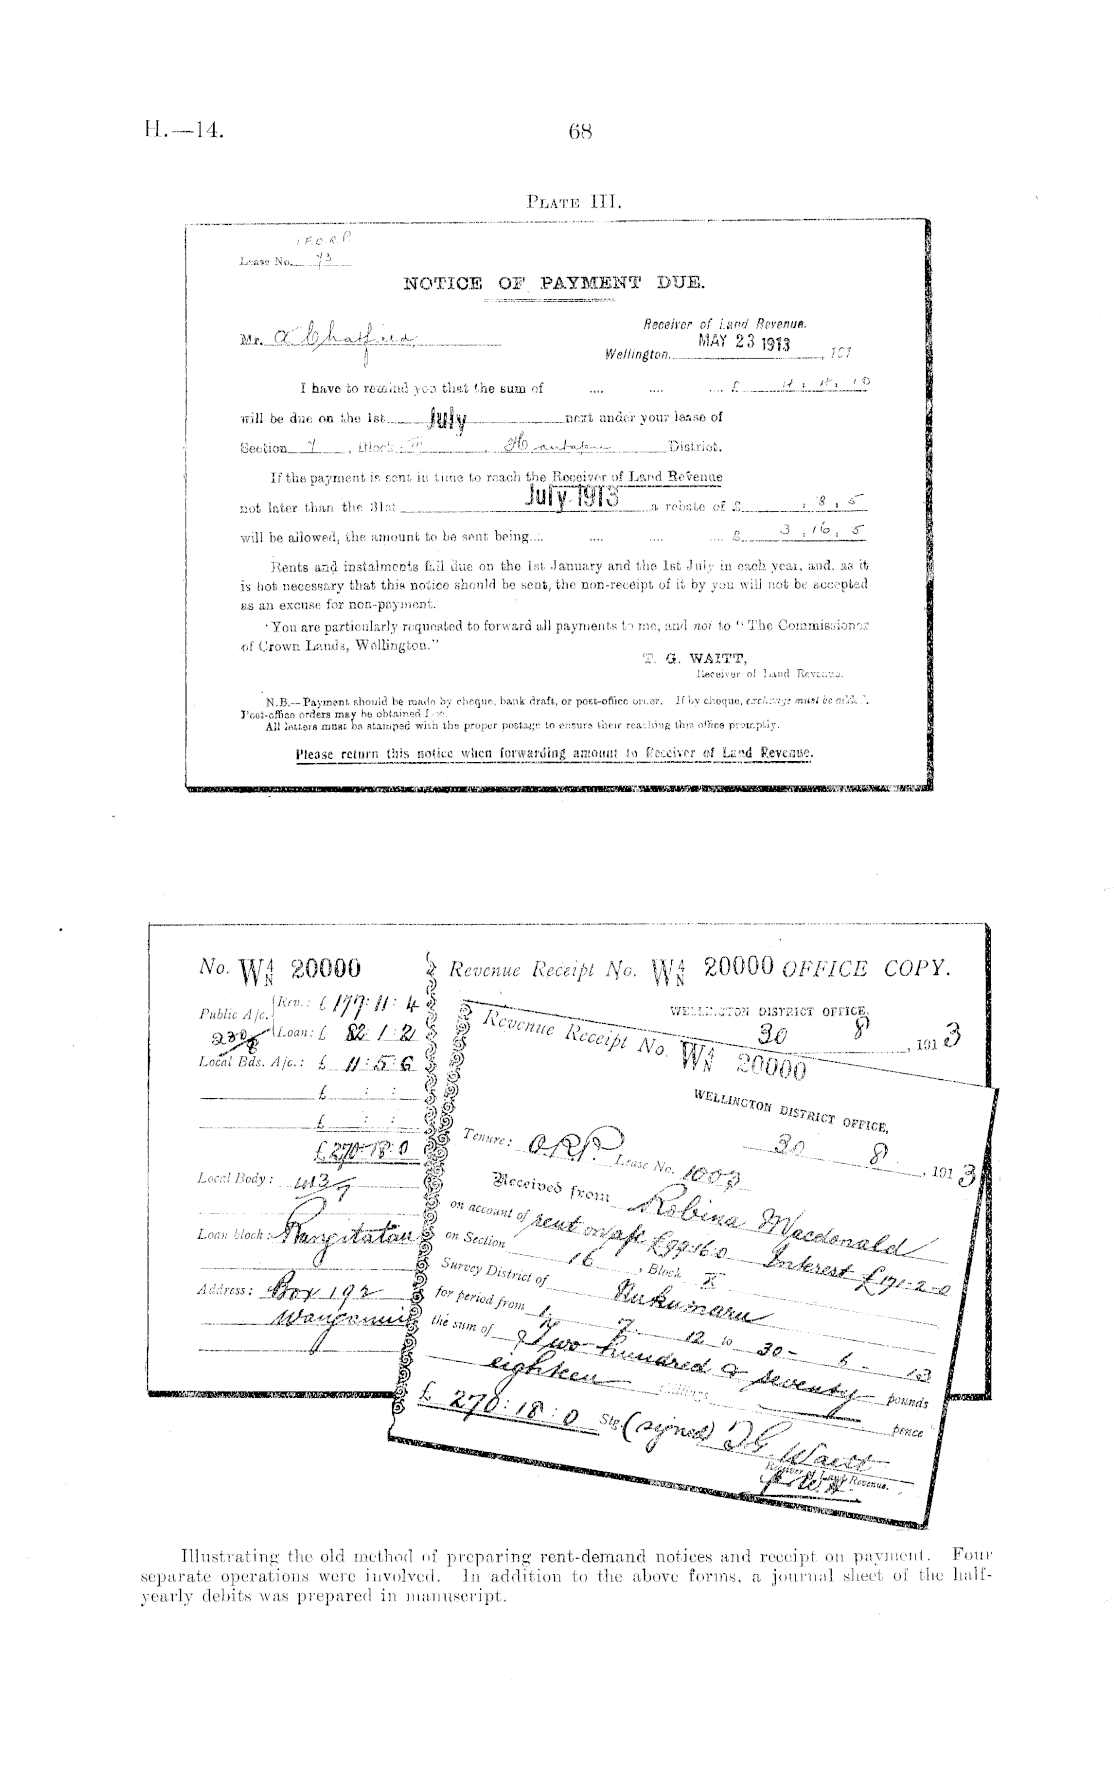 H.—14.
68
PLATE III.
Lease No. 73
NOTICE OF PAYMENT DUE.
Receiver of Land Revenue.
Mr. A Chatfield
Wellington. MAY 23 1913, 191
I have to remind you that the sum of .... .... .... £ 4 : 4 : 10
will be due on the 1st July next under your lease of
Section 7, Block III, District.
If the payment is sent in time to reach the Receiver of Land Revenue
not later than the 31st July 1913 a rebate of £ : 8 , 5
will be allowed, the amount to be sent being.... .... .... .... £ 3 , 16 , 5
Rents and instalments fall due on the 1st January and the 1st July in each year, and, as it
is not necessary that this notice should be sent, the non-receipt of it by you will not be accepted
as an excuse for non-payment.
You are particularly requested to forward all payments to me, and not to "The Commissioner
of Crown Lands, Wellington."
T. G. WAITT,
Receiver of Land Revenue.
N.B.—Payment should be made by cheque, bank draft, or post-office order. If by cheque, exchange must be added.
Post-office orders may be obtained
All letters must be stamped with the proper postage to ensure their reaching this office promptly.
Please return this notice when forwarding amount to Receiver of Land Revenue.
No. WAN 20000
Public A/c. Rev.: £ 177 : 11 : 4
Loan: £ 82 : 1 : 2
Local Bds. A/c.: £ 11 : 5 : 6
£ : :
£ : :
£270 : 18 : 0
Local Body:
Loan block: Rangitatau
Address: Box 192
Wanganui
Revenue Receipt No. WAN 20000 OFFICE COPY.
WELLINGTON DISTRICT OFFICE,
30 8, 1913
Revenue Receipt No. WAN 20000
WELLINGTON DISTRICT OFFICE,
30 8, 1913
Tenure: ORP. Lease No. 1003
Received from Robina Macdonald
on account of rent on £99 16 0 Interest £171-2-0
on Section 16, Block X
Survey District of Nukumaru
for period from 1 7 12 to 30 - 6 - 13
the sum of Two hundred & seventy pounds
eighteen shillings pence
£ 270 : 18 : 0 Stg. (signed) T G Waitt
Receiver of Land Revenue.
Illustrating the old method of preparing rent-demand notices and receipt on payment. Four
separate operations were involved. In addition to the above forms, a journal sheet of the half-
yearly debits was prepared in manuscript.